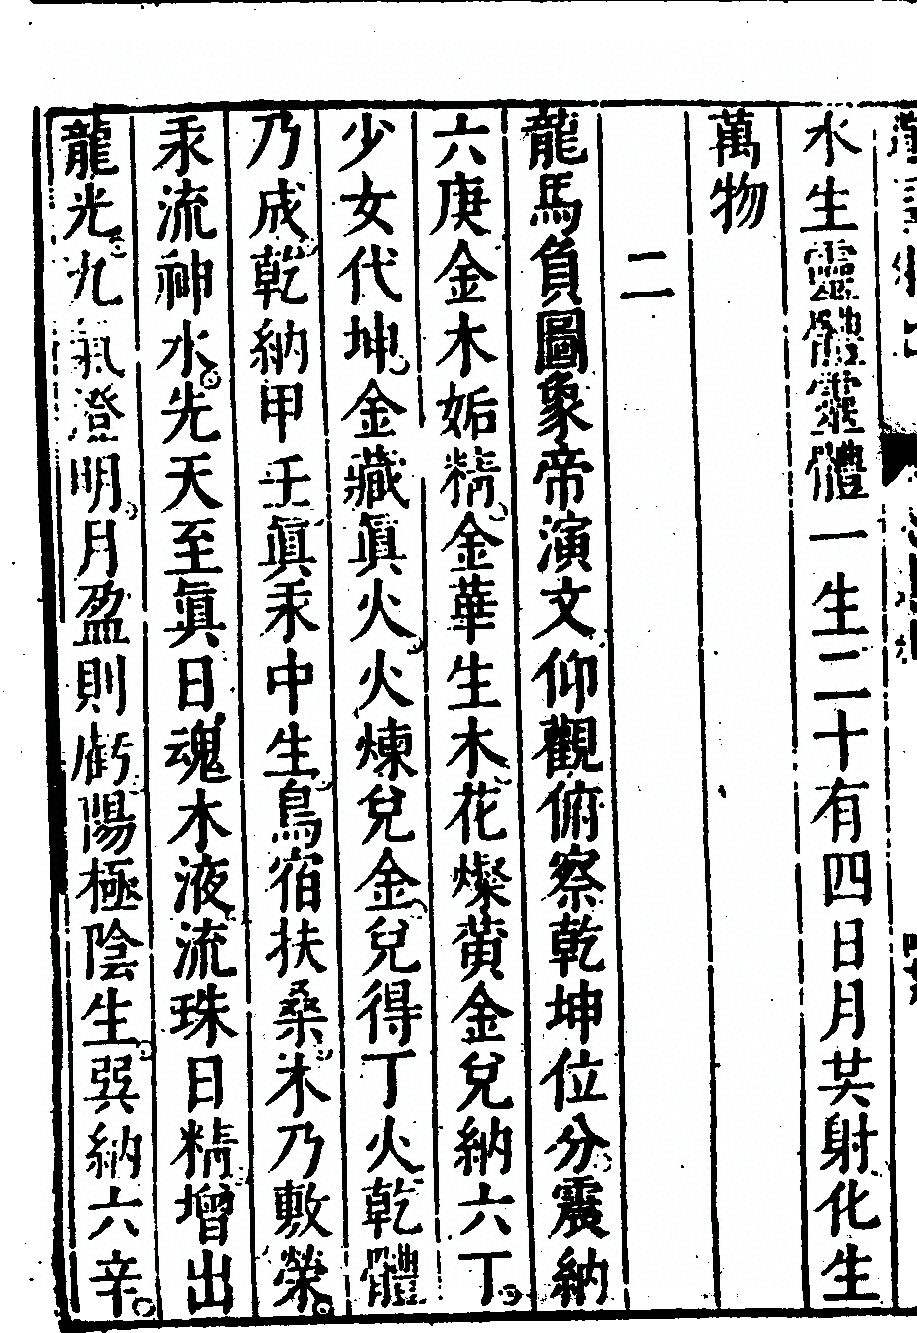 水生靈體靈體一生二十有四日月其射化生
萬物
二
龍馬負圖象帝演文仰觀俯察乾坤位分震納
六庚金木姤精金華生木花燦黃金兌納六丁
少女代坤金藏眞火火煉兌金兌得丁火乾體
乃成乾納甲壬眞汞中生烏宿扶桑木乃敷榮
汞流神水先天至眞日魂木液流珠日精增出
龍光九氣澄明月盈則虧陽極陰生巽納六辛